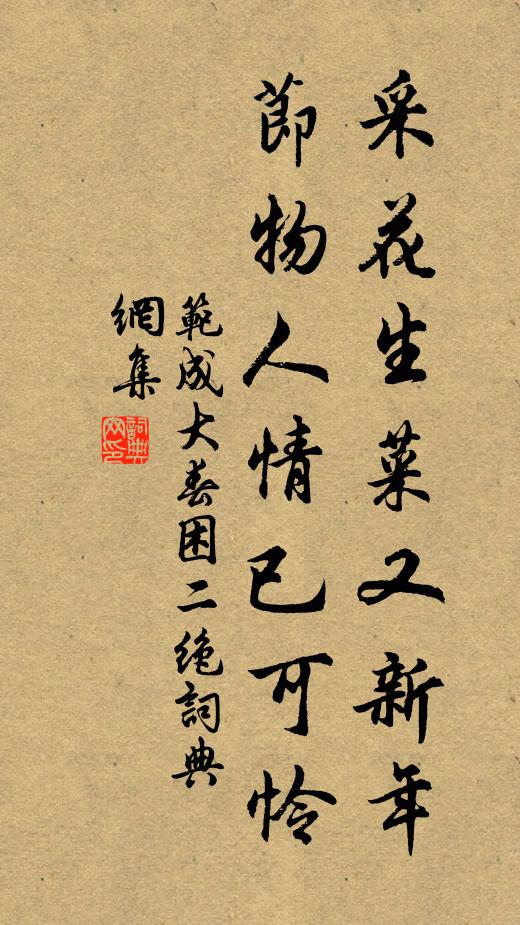 采花生菜又新年
節物人情已可怜
範成大春困二绝詞典
網集
詞典
网印